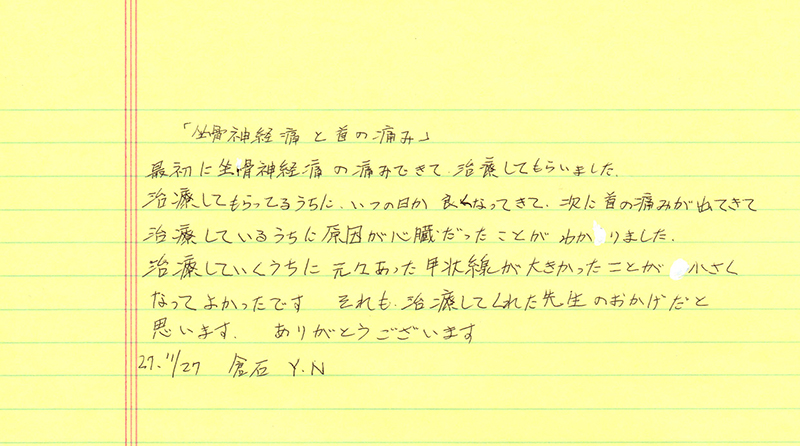 「坐骨神経痛と首の痛み」
最初に坐骨神経痛の痛みできて、治療してもらいました。
治療してもらってるうちに、いつの日か良くなってきて、次に首の痛みが出てきて
治療しているうちに原因が心臓だったことがわかりました。
治療していくうちに元々あった甲状線が大きかったことが小さく
なってよかったです それも、治療してくれた先生のおかげだと
思います。 ありがとうございます
27.11/27 倉石 Y.N